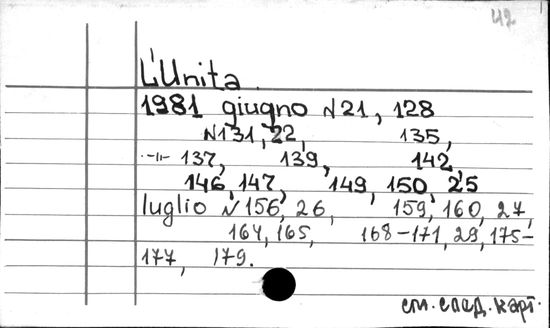 42
L'Unita
1981 giugno N21, 128
N131, 22, 135,
-"- 137, 139, 142,
146, 147, 149, 150, 25
luglio N156, 26, 159, 160, 27,
164, 165, 168-171, 29, 175-
177, 179.
см. след. карт.